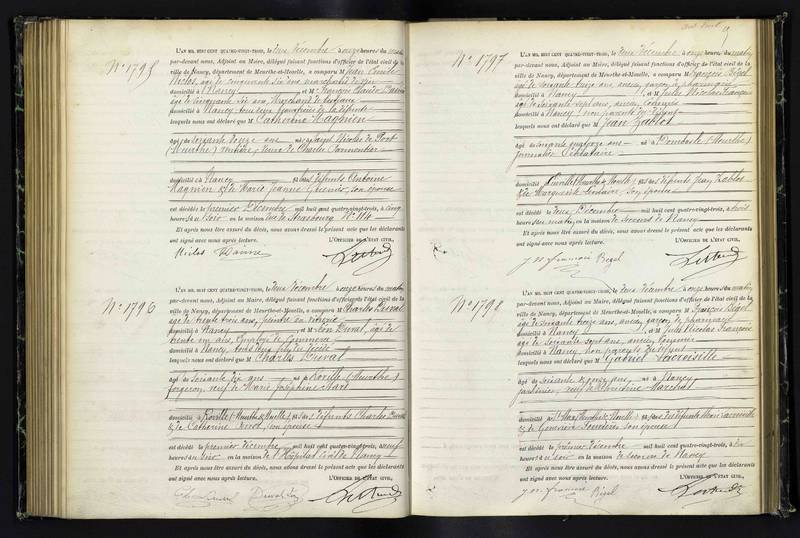 N° 1795
L'AN MIL HUIT CENT QUATRE-VINGT-TROIS, le deux Décembre à onze heures du matin
par-devant nous, Adjoint au Maire, délégué faisant fonctions d'officier de l'état civil de la
ville de Nancy, département de Meurthe-et-Moselle, a comparu M Jean
Nicolas, âgé de cinquante six ans
domicilié à Nancy et M François
âgé de cinquante six ans, Marchand
domicilié à Nancy
lesquels nous ont déclaré que M Catherine Magnien
âgée de soixante onze ans née à Saint Nicolas de Port
(Meurthe) rentière, veuve de Charles Parmentier
domiciliée à Nancy fille des défunts Antoine
Magnien & de Marie Jeanne Grenier, son épouse
est décédée le premier Décembre mil huit cent quatre-vingt-trois, à cinq
heures du soir en la maison rue de Strasbourg N° 114
Et après nous être assuré du décès, nous avons dressé le présent acte que les déclarants
ont signé avec nous après lecture. L'OFFICIER DE L'ÉTAT CIVIL,
N° 1796
L'AN MIL HUIT CENT QUATRE-VINGT-TROIS, le deux décembre à onze heures du matin
par-devant nous, Adjoint au Maire, délégué faisant fonctions d'officier de l'état civil de la
ville de Nancy, département de Meurthe-et-Moselle, a comparu M Charles Duval
âgé de trente trois ans, peintre
domicilié à Nancy et M Léon Duval, âgé de
trente un ans, Employé de Commerce
domicilié à Nancy, tous deux fils du décédé
lesquels nous ont déclaré que M Charles Duval
âgé de soixante dix ans né à Roville (Meurthe)
forgeron, veuf de Marie Joséphine
domicilié à Roville (Meurthe & Moselle) fils des défunts Charles Duval
& de Catherine son épouse
est décédé le premier décembre mil huit cent quatre-vingt-trois, à neuf
heures du soir en la maison de l'Hôpital civil de Nancy
Et après nous être assuré du décès, nous avons dressé le présent acte que les déclarants
ont signé avec nous après lecture. L'OFFICIER DE L'ÉTAT CIVIL,
N° 1797
L'AN MIL HUIT CENT QUATRE-VINGT-TROIS, le deux Décembre à onze heures du matin
par-devant nous, Adjoint au Maire, délégué faisant fonctions d'officier de l'état civil de la
ville de Nancy, département de Meurthe-et-Moselle, a comparu M François Bigel
âgé de soixante treize ans, ancien garçon de pharmacie
domicilié à Nancy et M Jules Nicolas François
âgé de soixante sept ans, ancien
domicilié à Nancy, non parents du défunt
lesquels nous ont déclaré que M Jean Zablot
âgé de soixante quatorze ans né à Dombasle (Meurthe)
journalier Célibataire
domicilié à Lunéville (Meurthe & Moselle) fils des défunts Jean Zablot
& de Marguerite son épouse
est décédé le deux Décembre mil huit cent quatre-vingt-trois, à trois
heures du matin, en la maison de secours de Nancy
Et après nous être assuré du décès, nous avons dressé le présent acte que les déclarants
ont signé avec nous après lecture. L'OFFICIER DE L'ÉTAT CIVIL,
J. N. François Bigel
N° 1798
L'AN MIL HUIT CENT QUATRE-VINGT-TROIS, le deux décembre à onze heures du matin
par-devant nous, Adjoint au Maire, délégué faisant fonctions d'officier de l'état civil de la
ville de Nancy, département de Meurthe-et-Moselle, a comparu M François Bigel
âgé de soixante treize ans, ancien garçon de pharmacie
domicilié à Nancy et M Jules Nicolas François
âgé de soixante sept ans, ancien
domicilié à Nancy, non parents du défunt
lesquels nous ont déclaré que M Gabriel Lacroisille
âgé de soixante & onze ans, né à Nancy
jardinier, veuf de Christine Marchal
domicilié à St Max (Meurthe & Moselle) fils des défunts
& de Geneviève son épouse
est décédé le premier décembre mil huit cent quatre-vingt-trois, à dix
heures du soir en la maison de secours de Nancy
Et après nous être assuré du décès, nous avons dressé le présent acte que les déclarants
ont signé avec nous après lecture. L'OFFICIER DE L'ÉTAT CIVIL,
J. N. François Bigel